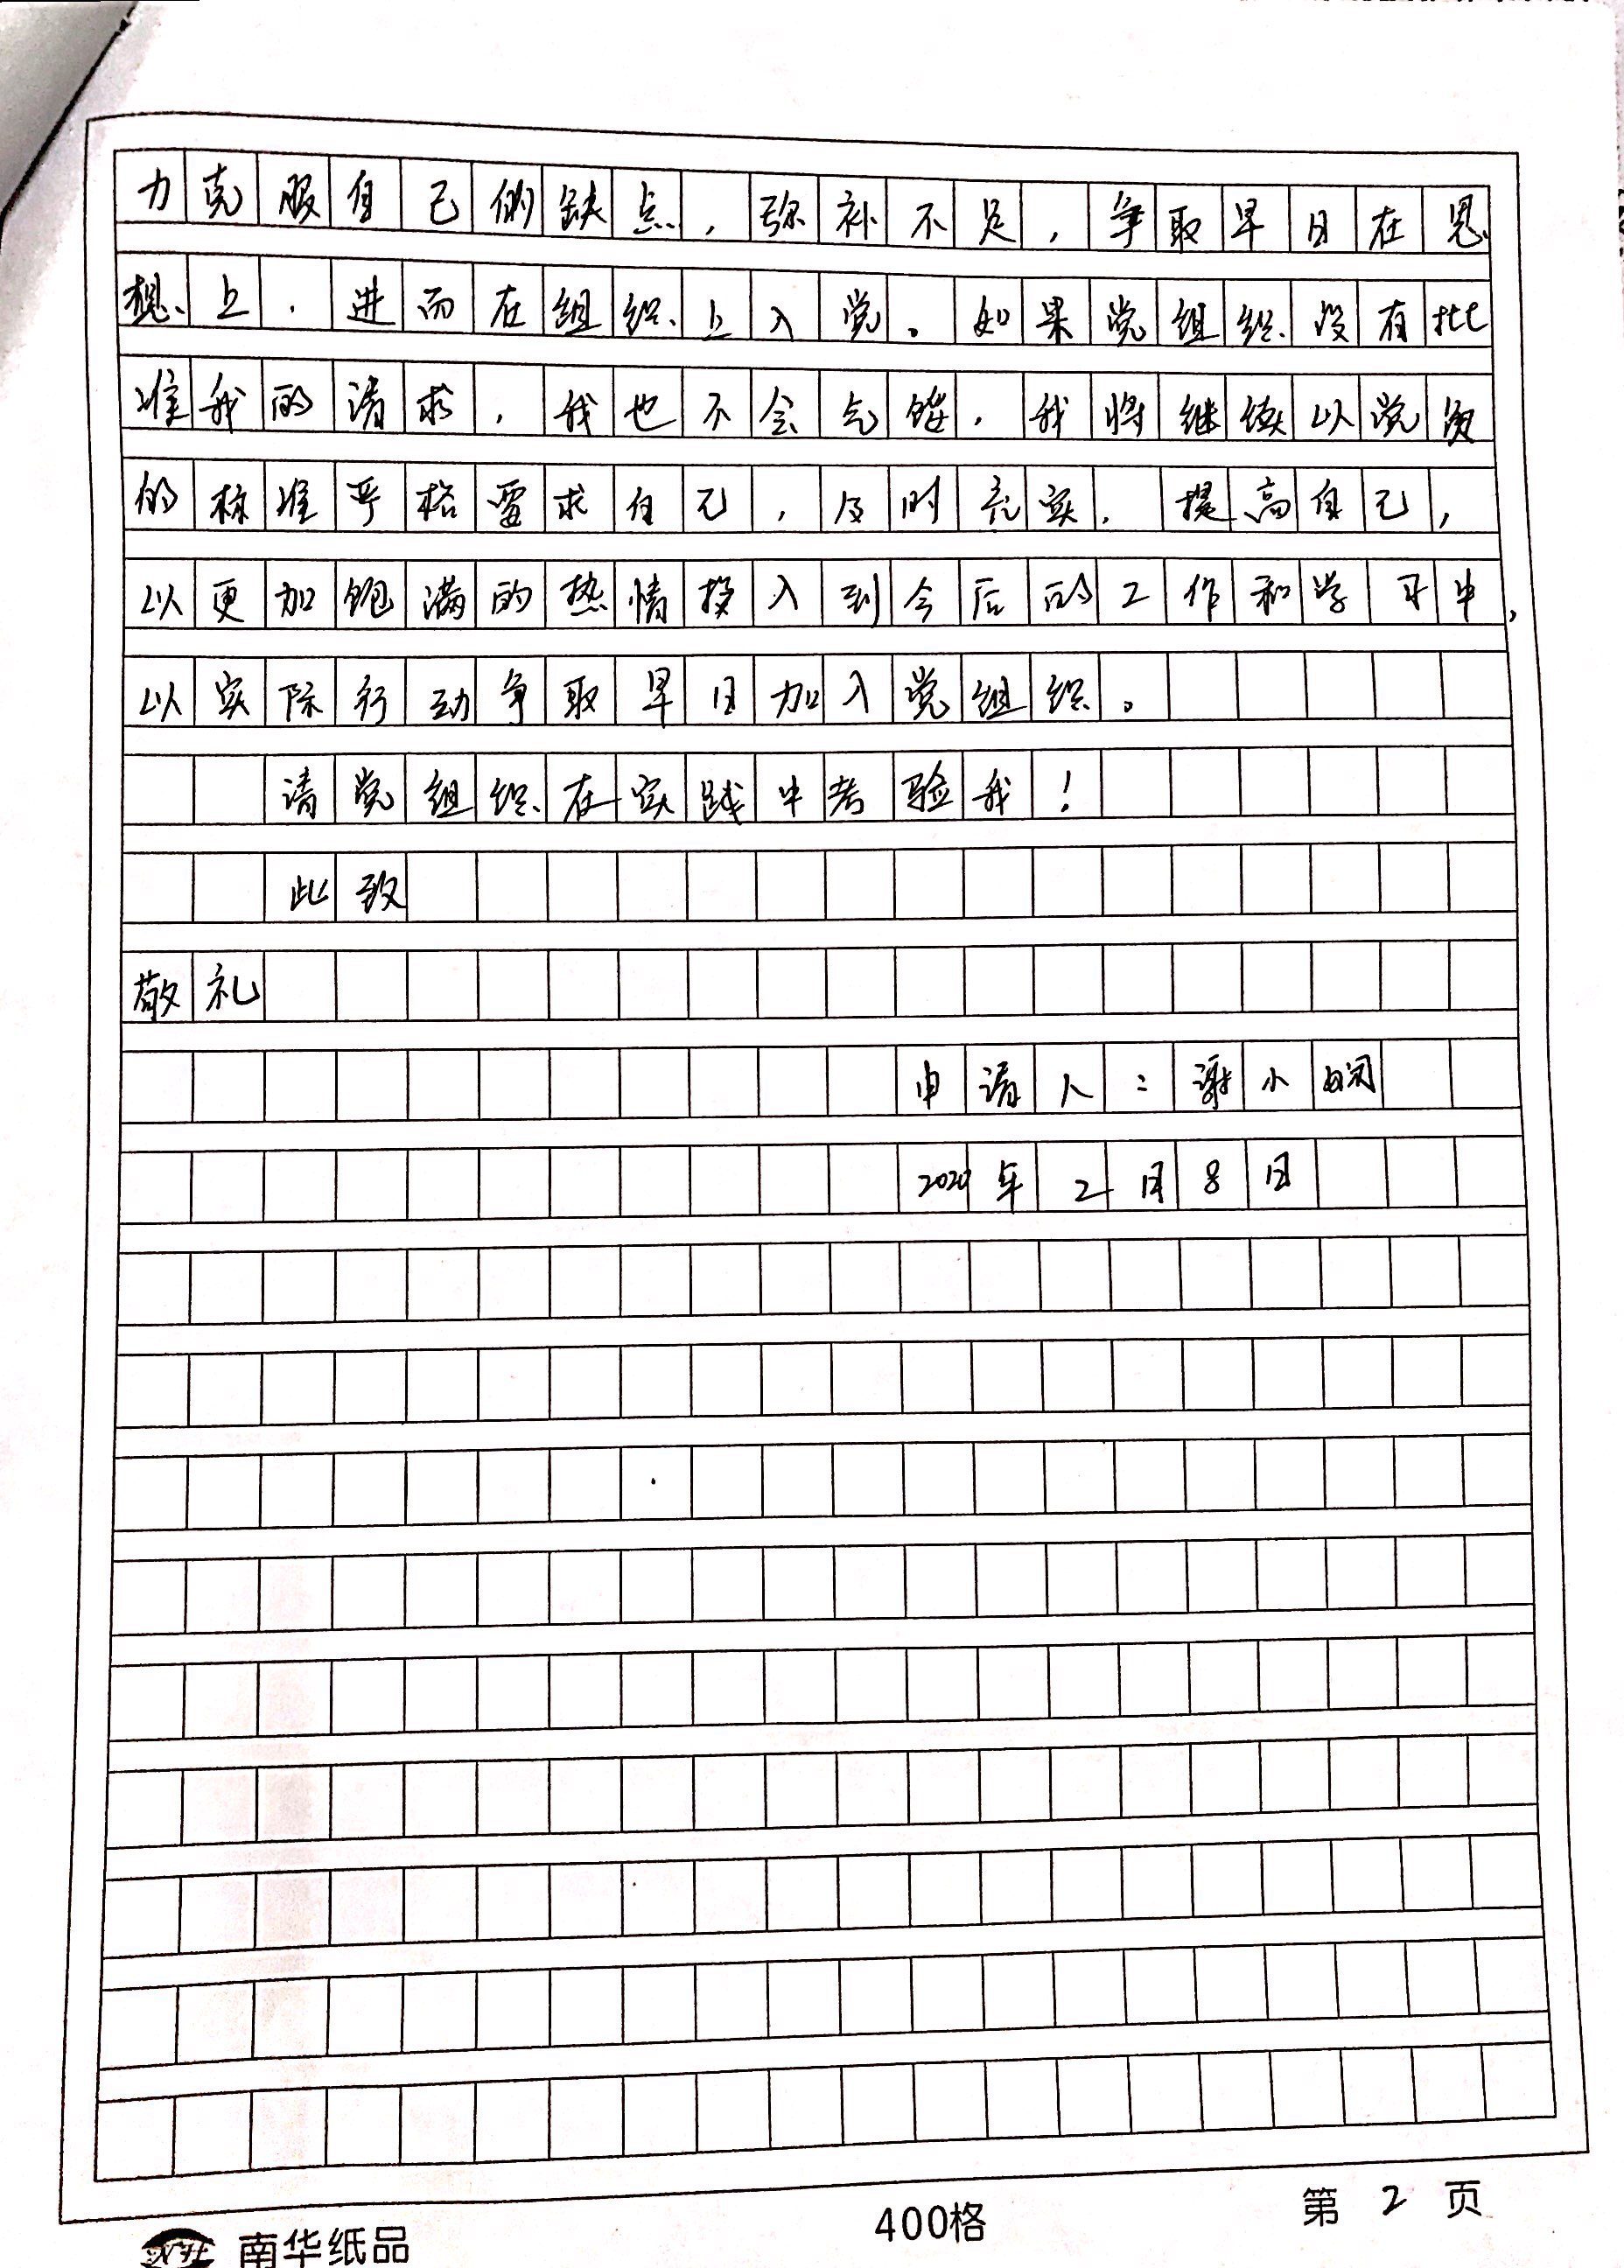 力克服自己的缺点，弥补不足，争取早日在思
想上，进而在组织上入党。如果党组织没有批
准我的请求，我也不会气馁，我将继续以党员
的标准严格要求自己，及时充实，提高自己，
以更加饱满的热情投入到今后的工作和学习中，
以实际行动争取早日加入党组织。
请党组织在实践中考验我！
此致
敬礼
申请人：谢小娴
2020年2月8日
南华纸品
400格
第2页